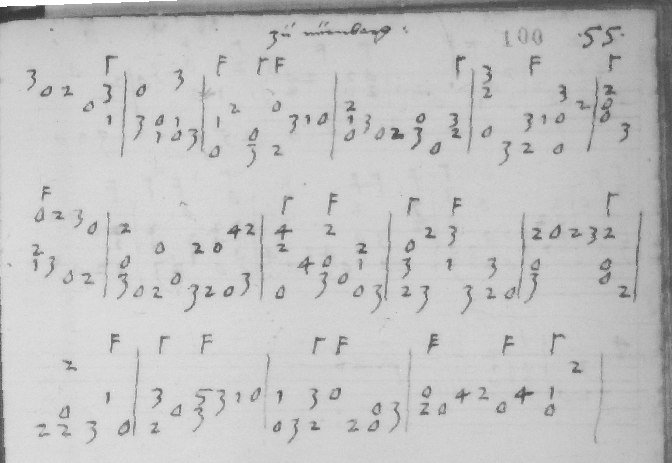 zů nürnberg : 100 ·55·
Γ F Γ F Γ F Γ
3 0 2 3 | 0 3 | | | 3 |
0 | | 2 0 | 2 | 2 3 2 | 2 0
1 | 3 0 1 | 1 3 1 0 | 1 3 0 3 | 3 1 0 | 0
1 0 3 | 0 | 0 0 2 3 2 | 0 | 3
| 0 3 2 | 0 | 3 2 0 |
F Γ F Γ F Γ
0 2 3 0 | 2 4 2 | 4 2 | 2 3 | 2 0 2 3 2 |
2 | 0 2 0 | 2 2 | 0 | |
1 3 | 0 | 4 0 1 | 3 1 3 | 0 0 |
0 2 | 3 0 | 3 0 | | 3 0 |
| 0 2 3 2 0 3 | 0 0 3 | 2 3 3 2 0 | 2 |
F Γ F Γ F F F Γ
2 | | | 2 |
1 | 3 5 3 1 0 | 1 3 0 | 0 4 2 4 1 |
0 | 0 3 | 0 3 | 2 0 0 0 |
2 2 3 0 | 2 | 0 3 2 2 0 | |